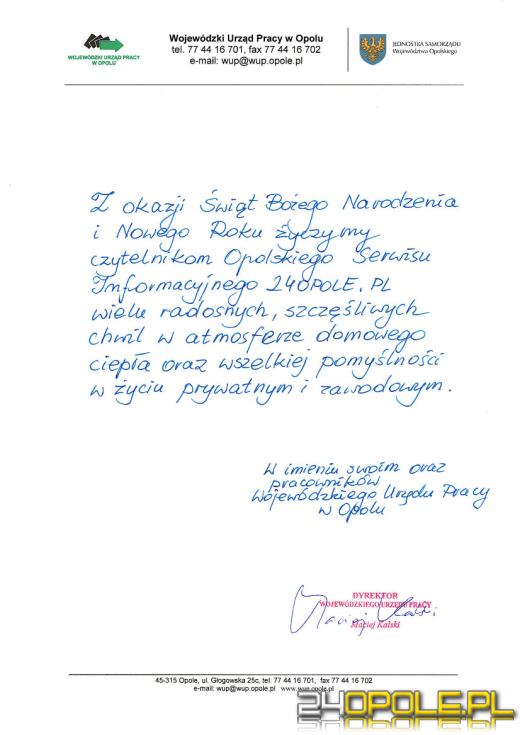 WOJEWÓDZKI URZĄD PRACY
W OPOLU
Wojewódzki Urząd Pracy w Opolu
tel. 77 44 16 701, fax 77 44 16 702
e-mail: wup@wup.opole.pl
JEDNOSTKA SAMORZĄDU
Województwa Opolskiego
Z okazji Świąt Bożego Narodzenia
i Nowego Roku życzymy
czytelnikom Opolskiego Serwisu
Informacyjnego 24OPOLE.PL
wielu radosnych, szczęśliwych
chwil w atmosferze domowego
ciepła oraz wszelkiej pomyślności
w życiu prywatnym i zawodowym.
W imieniu swoim oraz
pracowników
Wojewódzkiego Urzędu Pracy
w Opolu
DYREKTOR
WOJEWÓDZKIEGO URZĘDU PRACY
Maciej Kalski
Maciej Kalski
45-315 Opole, ul. Głogowska 25c, tel. 77 44 16 701, fax 77 44 16 702
e-mail: wup@wup.opole.pl www.wup.opole.pl
24OPOLE.PL